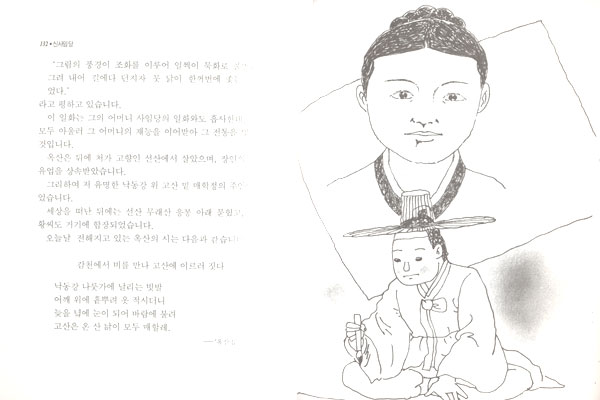 132 • 신사임당
"그림의 풍경이 조화를 이루어 일찍이 묵화로
그려 내어 길에다 던지자 뭇 닭이 한꺼번에
였다."
라고 평하고 있습니다.
이 일화는 그의 어머니 사임당의 일화와도 흡사한데
모두 아울러 그 어머니의 재능을 이어받아 그 전통을
것입니다.
옥산은 뒤에 처가 고향인 선산에서 살았으며, 장인의
유업을 상속받았습니다.
그리하여 저 유명한 낙동강 위 고산 밑 매학정의
었습니다.
세상을 떠난 뒤에는 선산 무래산 응봉 아래
황씨도 거기에 합장되었습니다.
오늘날 전해지고 있는 옥산의 시는 다음과 같습니다
감천에서 비를 만나 고산에 이르러 짓다
낙동강 나룻가에 날리는 빗발
어깨 위에 흩뿌려 옷 적시더니
늦을 녘에 눈이 되어 바람에 불려
고산은 온 산 닭이 모두 매화래.